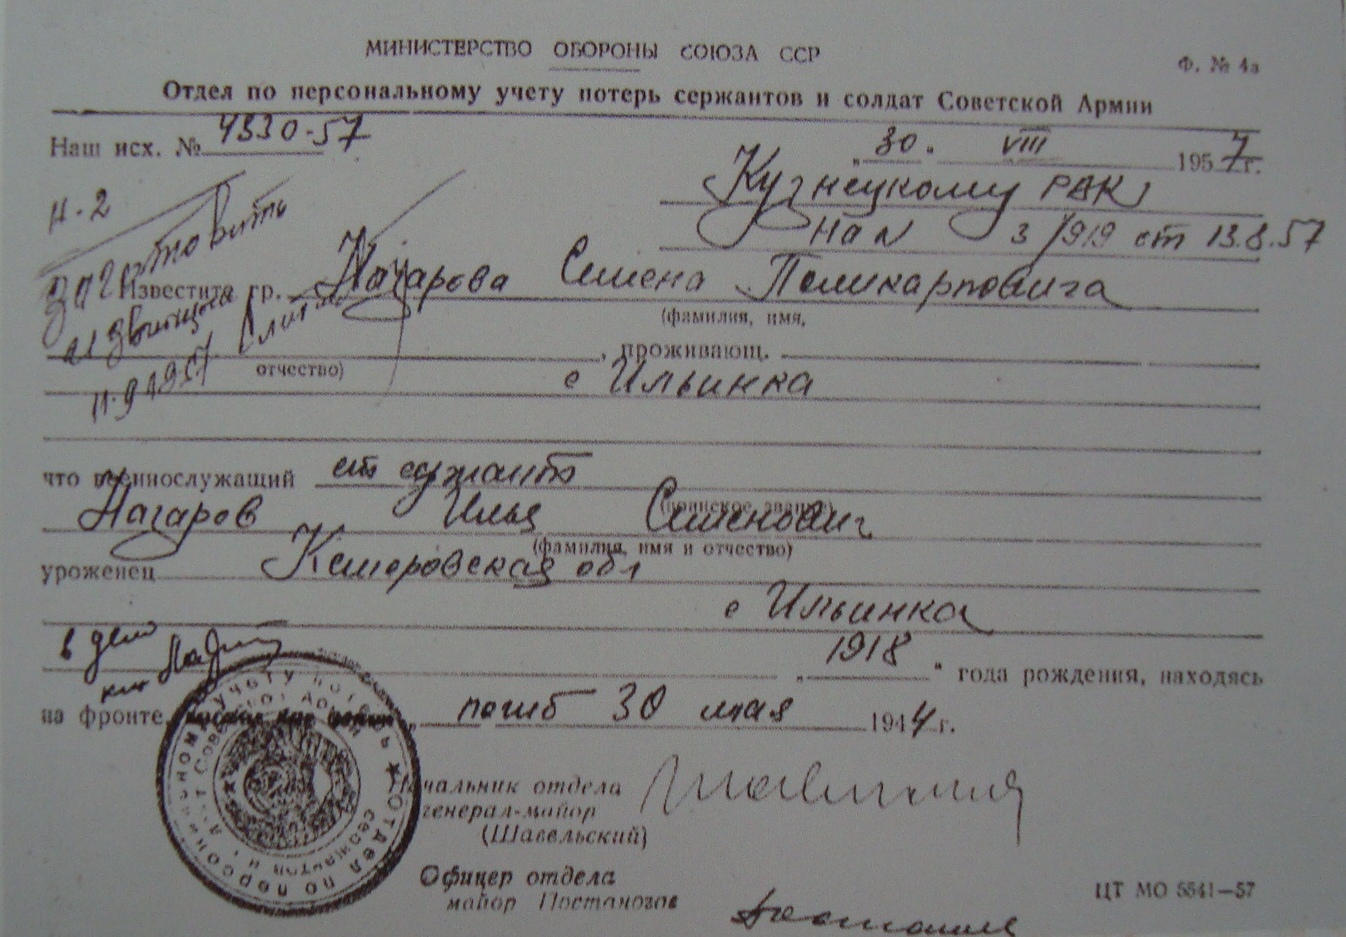 МИНИСТЕРСТВО ОБОРОНЫ СОЮЗА ССР
Ф. № 4а
Отдел по персональному учету потерь сержантов и солдат Советской Армии
Наш исх. № 4330-57
„30“ VIII 1957 г.
Кузнецкому РВК
н-2
на N 3/919 от 13.8.57
заготовить
Известите гр. Назарова Семена Поликарповича
(фамилия, имя,
отчество)
, проживающ.
с Ильинка
что военнослужащий ст сержант
(воинское звание)
Назаров Илья Семенович
(фамилия, имя и отчество)
уроженец Кемеровская обл
с Ильинка
в дело
„1918“ года рождения, находясь
на фронте, погиб 30 мая 1944 г.
Начальник отдела
генерал-майор
(Шавельский)
Офицер отдела
майор Постаногов
ЦТ МО 5541—57
Отдел по персональному учету потерь
сержантов и солдат Советской Армии